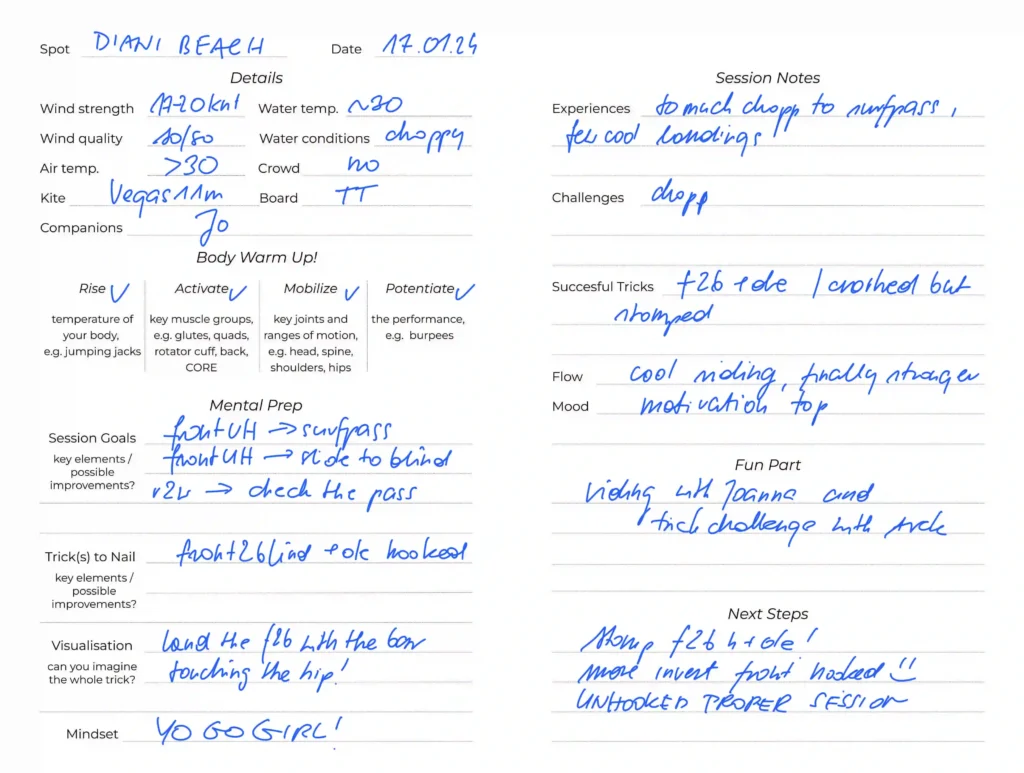 Spot DIANI BEACH Date 17.01.24
Details
Wind strength 17-20knt Water temp. ~30
Wind quality /80 Water conditions choppy
Air temp. >30 Crowd no
Kite Vegas 11m Board TT
Companions Jo
Body Warm Up!
Rise ✓ Activate ✓ Mobilize ✓ Potentiate ✓
temperature of your body, e.g. jumping jacks
key muscle groups, e.g. glutes, quads, rotator cuff, back, CORE
key joints and ranges of motion, e.g. head, spine, shoulders, hips
the performance, e.g. burpees
Mental Prep
Session Goals frontUH → surfpass
key elements / possible improvements? frontUH → slide to blind
r2r → check the pass
Trick(s) to Nail front2blind + ole hooked
key elements / possible improvements?
Visualisation land the f2b with the bar
can you imagine the whole trick? touching the hip!
Mindset YO GO GIRL!
Session Notes
Experiences to much chopp to surfpass,
few cool landings!
Challenges chopp
Succesful Tricks f2b + ole / crashed but
stomped
Flow cool riding, finally stronger
Mood motivation top
Fun Part
riding with Joanna and
trick challenge with
Next Steps
stomp f2b + ole!
more invert front hooked !!
UNHOOKED PROPER SESSION